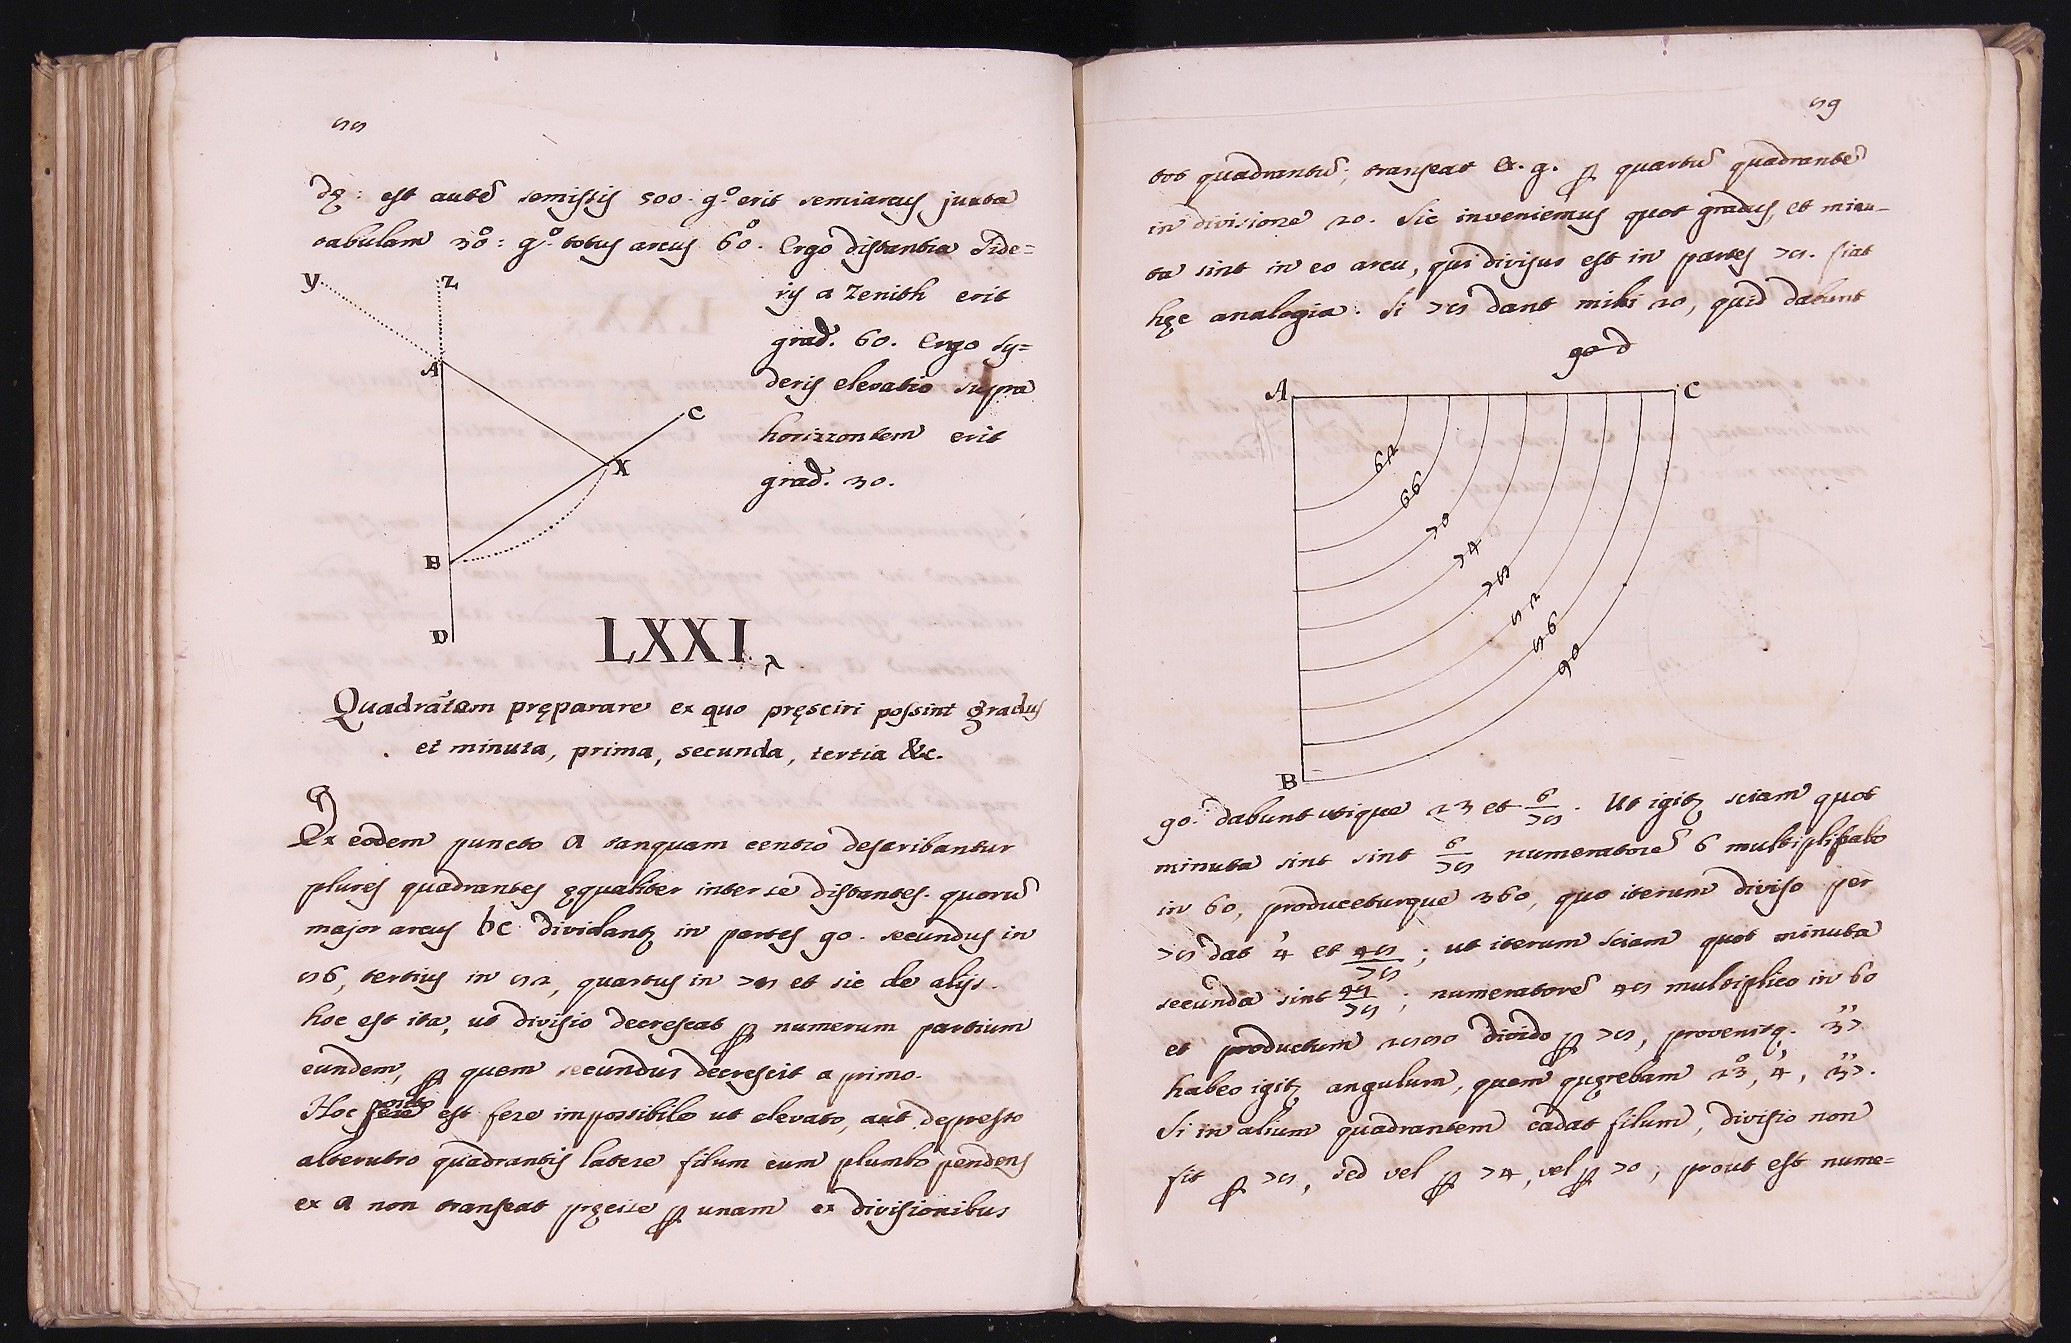 88
dę: est autē semissis 500. g.º erit semiarcus juxta
tabulam 30̊: g.º totus arcus 60̊. Ergo distantia Side=
ris a Zenith erit
grad. 60. Ergo sy=
deris elevatio supra
horizzontem erit
grad. 30.
Y Z
A
C
X
B
D
LXXI
Quadrātem pręparare ex quo pręsciri possint gradus
et minuta, prima, secunda, tertia &c.
Ex eodem puncto A tanquam centro describantur
plures quadrantes ęqualiter inter se distantes. quorū
major arcus bc dividantz in partes 90. secundus in
86, tertius in 82, quartus in 78 et sic de alijs.
hoc est ita, ut divisio decrescat ꝑ numerum partium
eundem, ꝑ quem secundus decrescit a primo.
Hoc posito est fere impossibile ut elevato, aut depresso
alterutro quadrantis latere filum cum plumbo pendens
ex A non transeat pręcise ꝑ unam ex divisionibus
89
tot quadrantū; transeat ex. g. ꝑ quartū quadrantē
in divisione 20. Sic inveniemus quot gradus, et minu-
ta sint in eo arcu, qui divisus est in partes 78. fiat
hęc analogia. Si 78 dant mihi 20, quid dabunt
90
A C
62
66
70
74
78
82
86
90
B
90. dabunt utique 23 et 6/78. Ut igitz sciam quot
minuta sint sint 6/78 numeratorē 6 multiplicabo
in 60, produceturque 360, quo iterum diviso per
78 dat 4̍ et 48/78; ut iterum sciam quot minuta
secunda sint 48/78; numeratorē 48 multiplico in 60
et productum 2880 divido ꝑ 78, provenitq. 37''
habeo igitz angulum, quem quęrebam 23̊, 4̍, 37''.
Si in alium quadrantem cadat filum, divisio non
fit ꝑ 78, sed vel ꝑ 74, vel ꝑ 70, prout est nume=